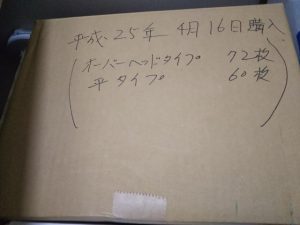 平成、25年 4月16日購入
(オーバーヘッドタイプ 72枚
平タイプ 60枚)